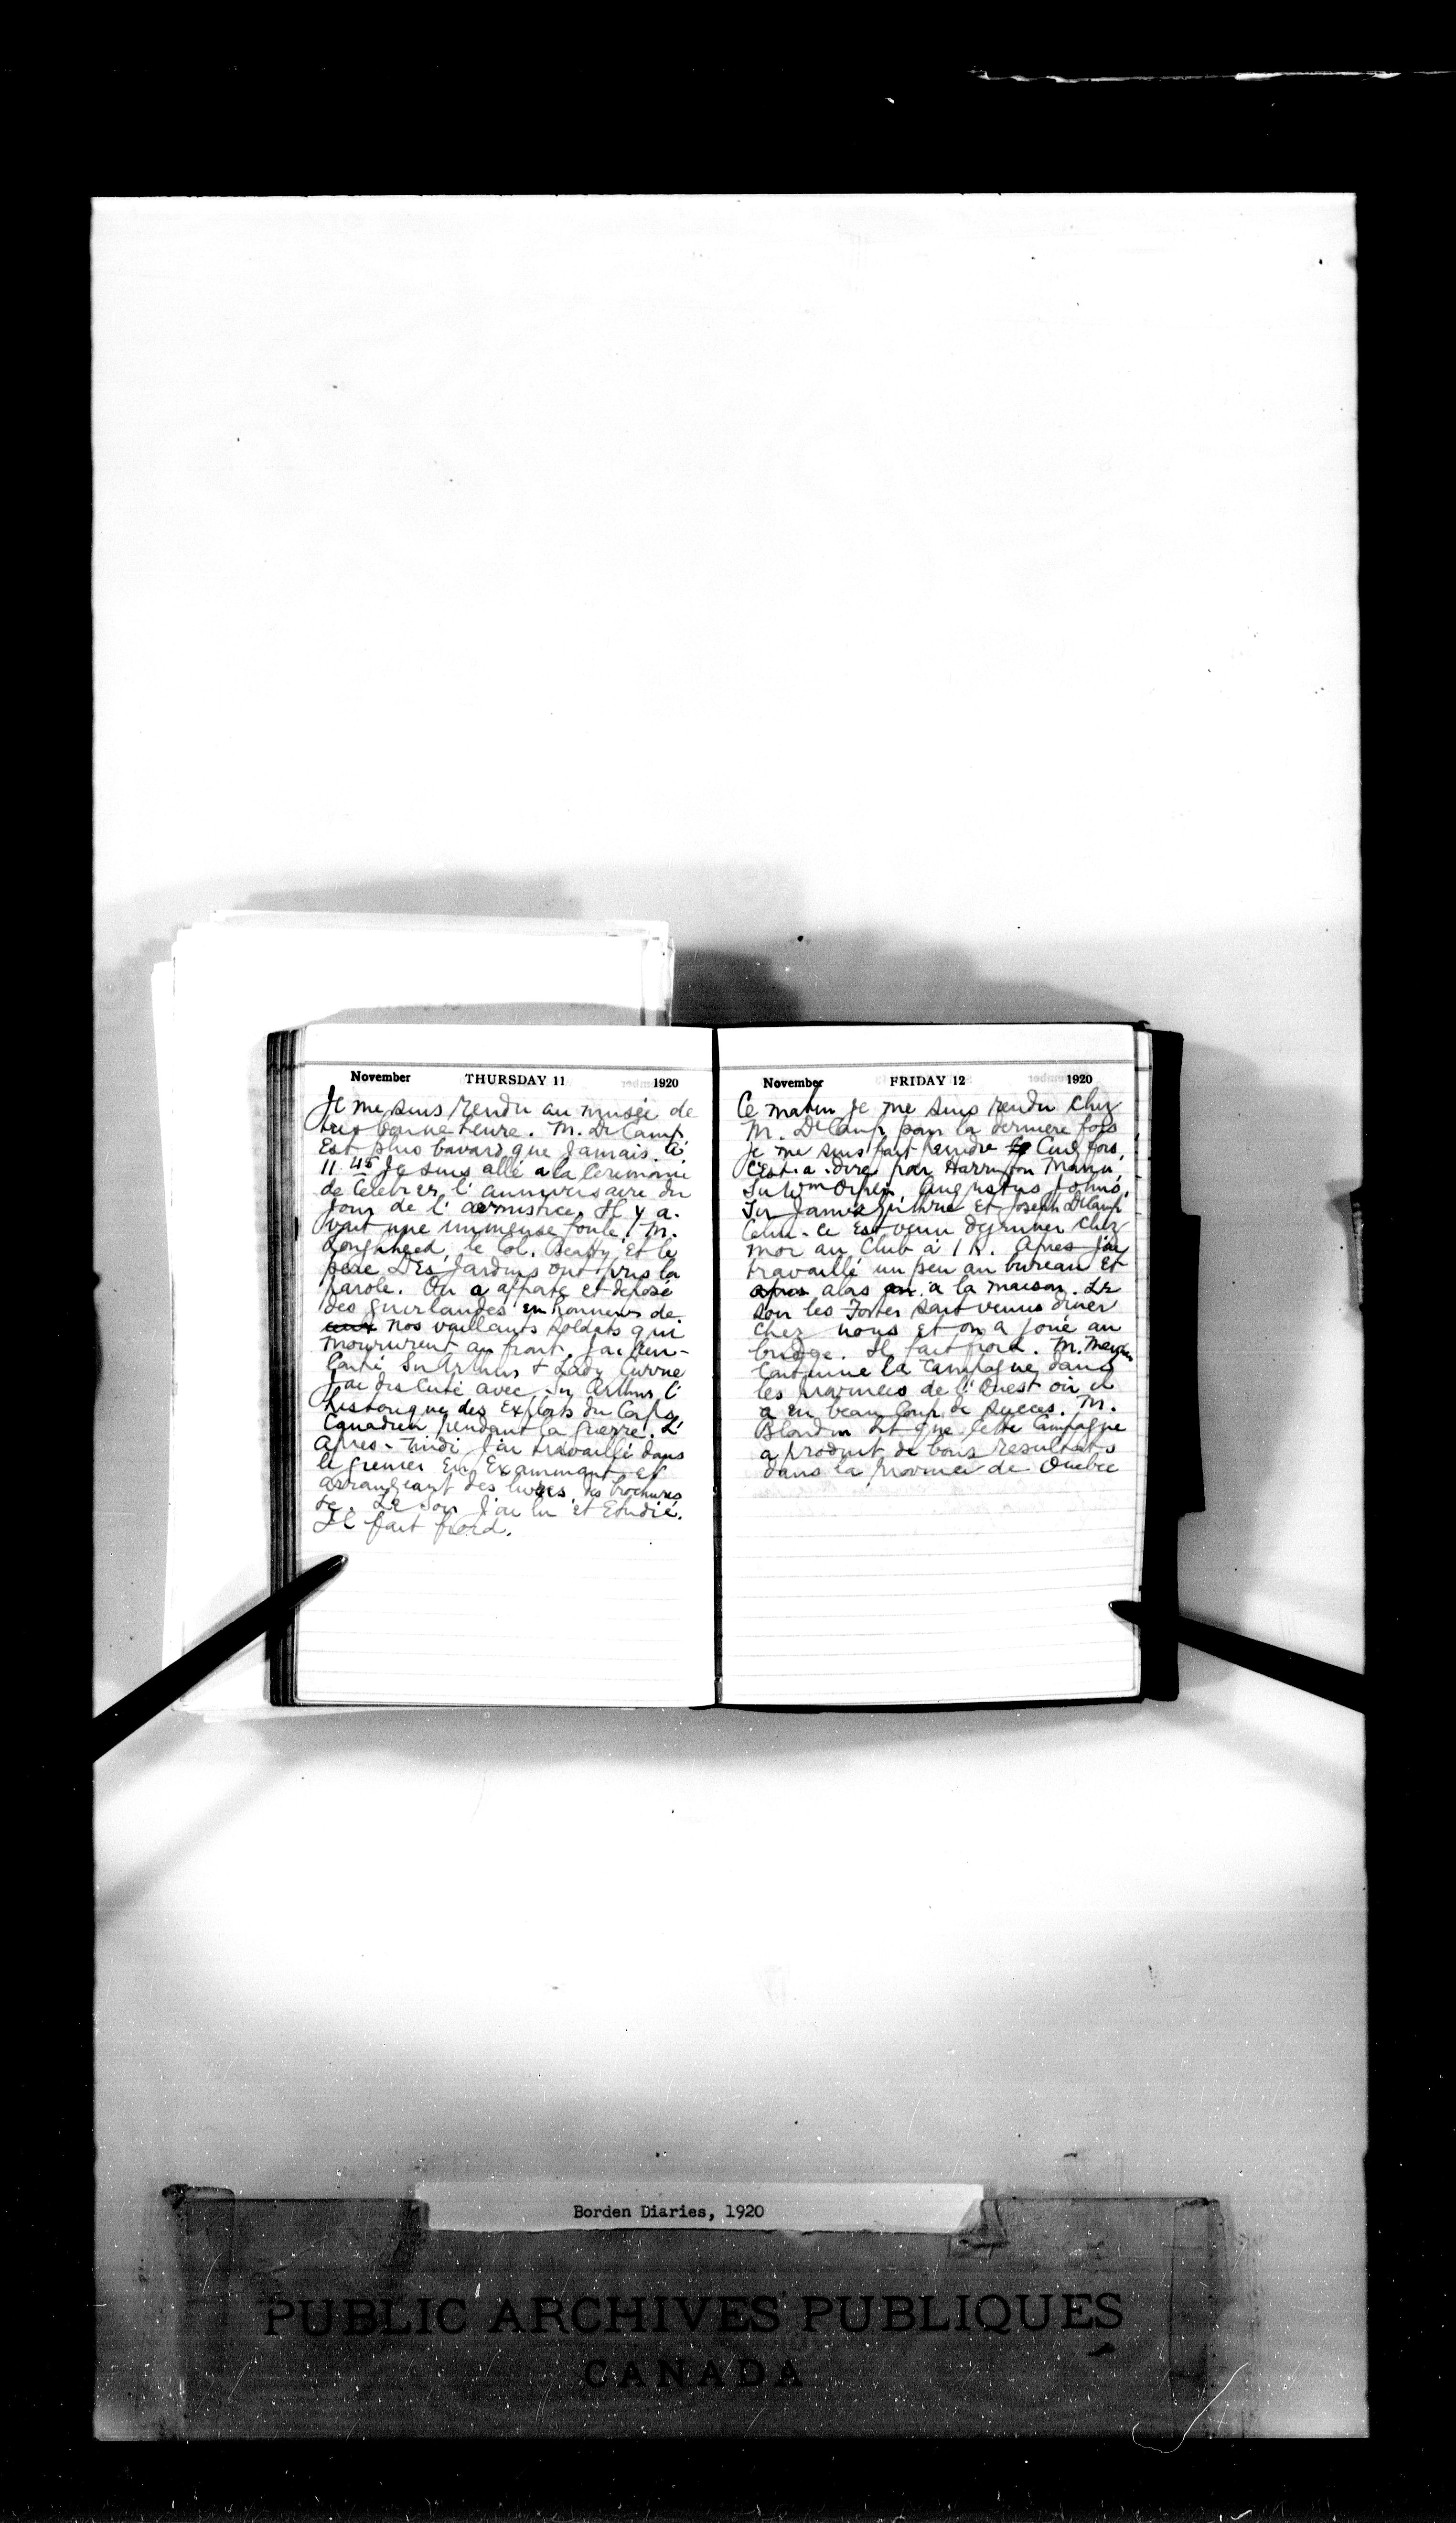 November THURSDAY 11 1920
Je me suis rendu au musée de
tres bonne heure. M. De Camp
Est plus bavard que Jamais. à
11.45 Je suis allé a la Ceremonie
de Celebrer l'anniversaire du
Jour de l'armistice. Il y a-
vait une immense foule. M.
Lougheed, le Col. Beatty et le
pere Des Jardins ont pris la
parole. On a apporte et deposé
des guerlandes en honneur de
aux nos vaillants soldats qui
moururent au front. J'ai ren-
contré Sir Arthur & Lady Currie
J'ai discuté avec Sir Arthur l'
historique des Exploits du Corps
Canadien pendant la guerre. L'
apres-midi J'ai travaillé dans
le grenier En Examinant et
arrangeant des livres, des brochures
&c. Le soir J'ai lu et Etudié.
Il fait froid.
November FRIDAY 12 1920
Ce matin je me suis rendu chez
M. DeCamp pour la derniere fois
Je me suis fait peindre Cinq fois,
C'est-a-dire par Harrington Mann,
Sir Wm Orpen, Augustus Johns,
Sir James Guthrie et Joseph DeCamp
Celui-ce Est venu dejeuner chez
moi au Club à 1 h. Apres j'ai
travaillé un peu au bureau et
apres alas a la maison. Le
soir les Foster sont venus diner
chez nous et on a joué au
bridge. Il fait froid. M. Meighen
Continue la Campagne dans
les provinces de l'Ouest où il
a eu beaucoup de succes. M.
Blondin dit que cette Campagne
a produit de bons resultats
dans la province de Quebec
Borden Diaries, 1920
PUBLIC ARCHIVES PUBLIQUES
CANADA